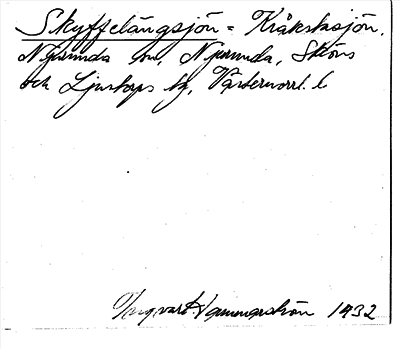 Skyffelängsjön = Kråkstasjön.
Njurunda sn, Njurunda, Sköns
och Ljustorps tg, Västernorrl. l
Ingvar Hammarström 1932